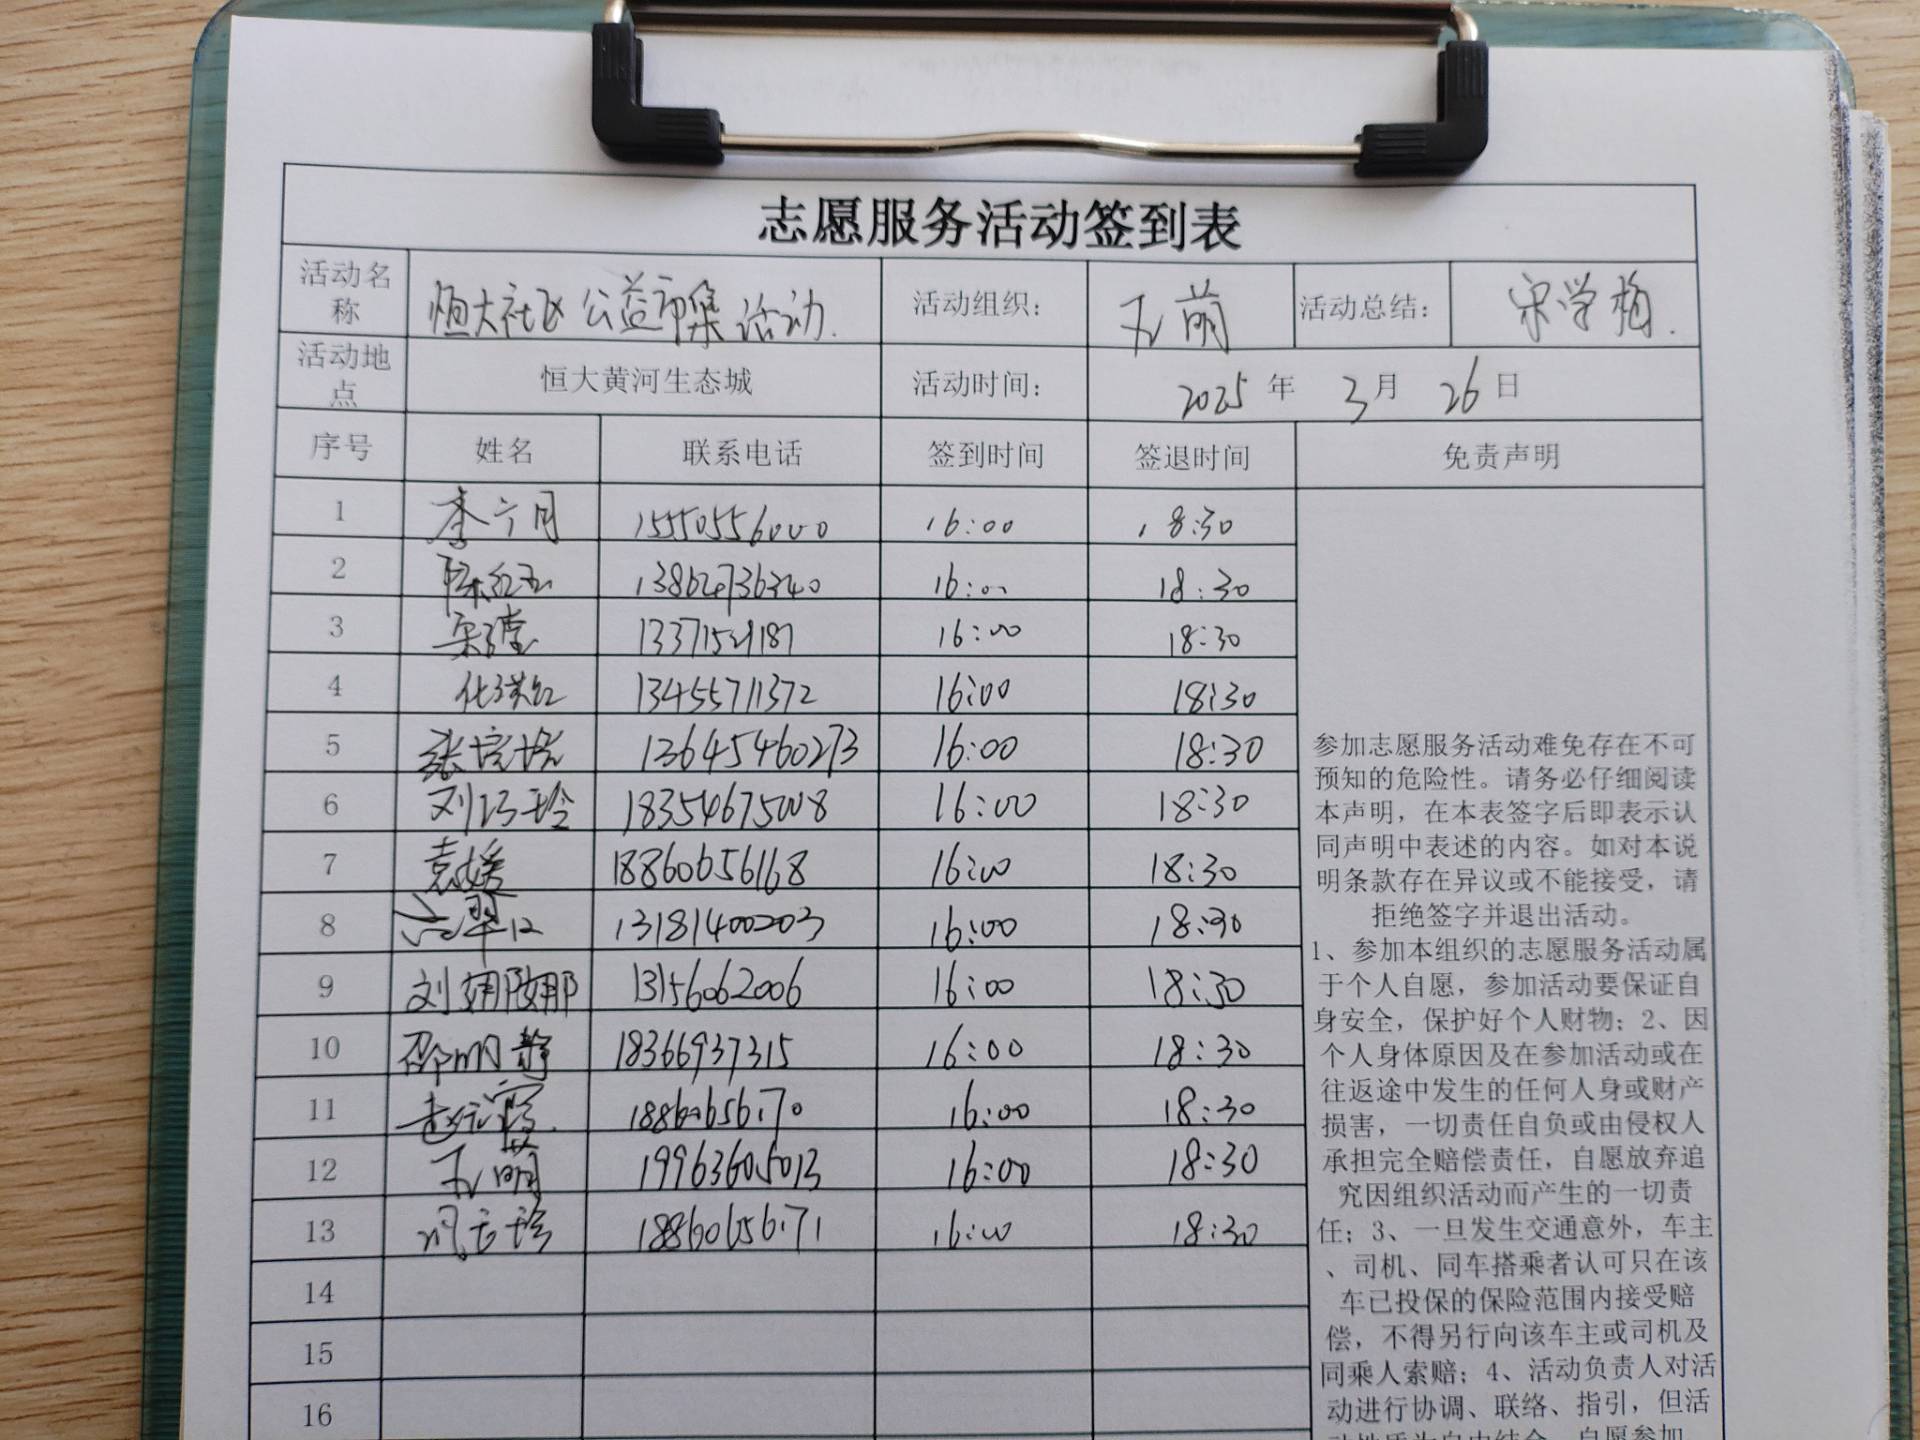 志愿服务活动签到表
活动名称 恒大社区公益市集活动. 活动组织: 王萌 活动总结: 宋学梅.
活动地点 恒大黄河生态城 活动时间: 2025 年 3 月 26 日
序号 姓名 联系电话 签到时间 签退时间 免责声明
1 李六月 15550556000 16:00 18:30
2 陈红玉 13864736340 16:00 18:30
3 16:00 18:30
4 13455711372 16:00 18:30
5 张培培 13645460273 16:00 18:30
6 刘巧玲 18354675008 16:00 18:30
7 袁媛 18860656168 16:00 18:30
8 13181400203 16:00 18:30
9 刘娜娜 13156062006 16:00 18:30
10 邵明静 18366937315 16:00 18:30
11 18860656170 16:00 18:30
12 王萌 19963605013 16:00 18:30
13 18860656171 16:00 18:30
14
15
16
参加志愿服务活动难免存在不可
预知的危险性。请务必仔细阅读
本声明，在本表签字后即表示认
同声明中表述的内容。如对本说
明条款存在异议或不能接受，请
拒绝签字并退出活动。
1、参加本组织的志愿服务活动属
于个人自愿，参加活动要保证自
身安全，保护好个人财物；2、因
个人身体原因及在参加活动或在
往返途中发生的任何人身或财产
损害，一切责任自负或由侵权人
承担完全赔偿责任，自愿放弃追
究因组织活动而产生的一切责
任；3、一旦发生交通意外，车主
、司机、同车搭乘者认可只在该
车已投保的保险范围内接受赔
偿，不得另行向该车主或司机及
同乘人索赔；4、活动负责人对活
动进行协调、联络、指引，但活
动性质为自由结合、自愿参加、